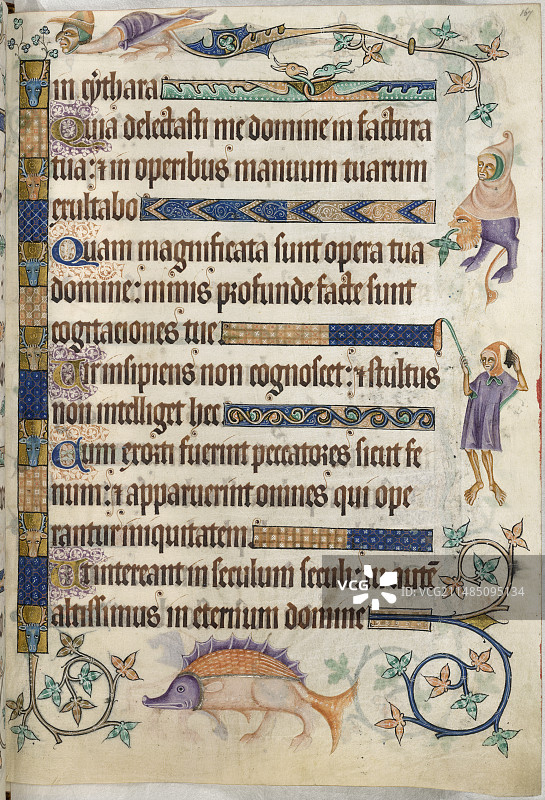 167
in cythara
Quia delectasti me domine in factura
tua: ⁊ in operibus manuum tuarum
exultabo
Quam magnificata sunt opera tua
domine: nimis profunde facte sunt
cogitaciones tue
Uir insipiens non cognoscet: ⁊ stultus
non intelliget hec
Cum exorti fuerint peccatores sicut fe
num: ⁊ apparuerint omnes qui ope
rantur iniquitatem
Ut intereant in seculum seculi: autē
altissimus in eternum domine
VCG
VCG.COM
ID: VCG211485095134